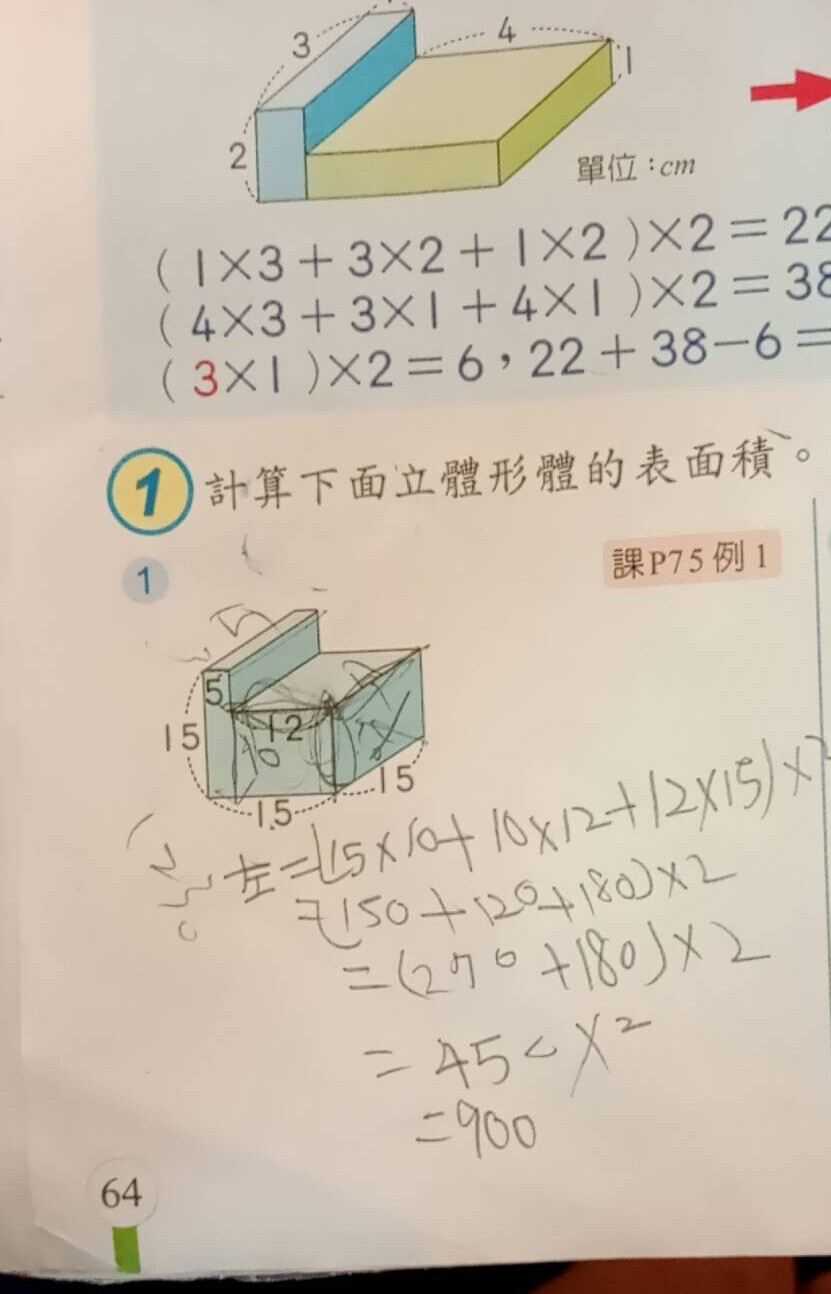 3
4
1
2
單位：cm
(1×3+3×2+1×2)×2=22
(4×3+3×1+4×1)×2=38
(3×1)×2=6，22+38-6=
1 計算下面立體形體的表面積。
課P75例1
1
5
15
12
10
15
15
=(15×10+10×12+12×15)×2
=(150+120+180)×2
=(270+180)×2
=450×2
=900
64